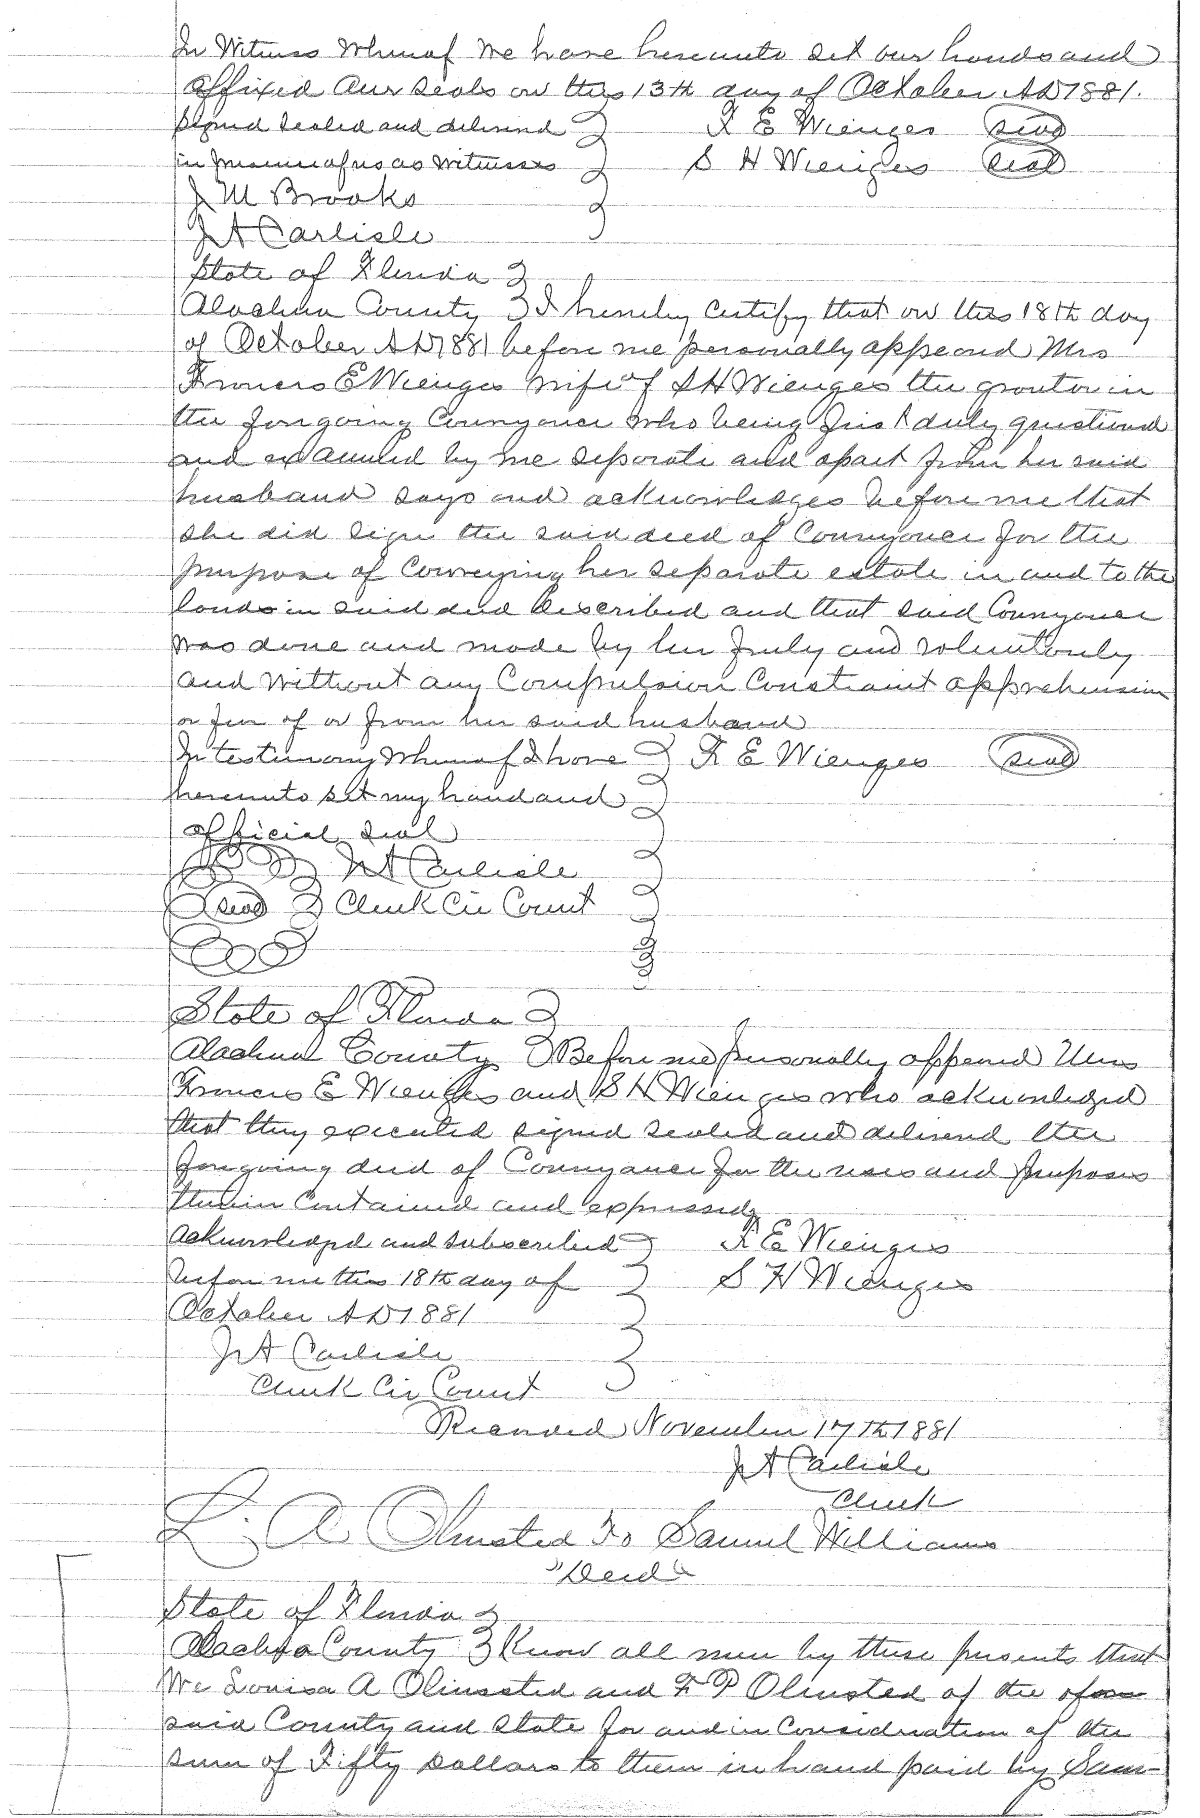 In Witness Whereof We have hereunto set our hands and
affixed our seals on this 13th day of October AD 1881.
Signed sealed and delivered F E Wienges seal
in presence of us as witnesses S H Wienges seal
J M Brooks
J A Carlisle
State of Florida
Alachua County I hereby certify that on this 18th day
of October AD 1881 before me personally appeared Mrs
Frances E Wienges wife of S H Wienges the grantor in
the foregoing Conveyance who being first duly questioned
and examined by me separate and apart from her said
husband says and acknowledges before me that
she did sign the said deed of Conveyance for the
purpose of Conveying her separate estate in and to the
lands in said deed described and that said Conveyance
was done and made by her freely and voluntarily
and without any Compulsion Constraint apprehension
or fear of or from her said husband
In testimony Whereof I have F E Wienges seal
hereunto set my hand and
official seal
J A Carlisle
seal Clerk Cir Court
State of Florida
Alachua County Before me personally appeared Mrs
Frances E Wienges and S H Wienges who acknowledged
that they executed signed sealed and delivered the
foregoing deed of Conveyance for the uses and purposes
therein contained and expressed
Acknowledged and subscribed F E Wienges
before me this 18th day of S H Wienges
October AD 1881
J A Carlisle
Clerk Cir Court
Recorded November 17th 1881
J A Carlisle
Clerk
L. A Olmsted To Samuel Williams
"Deed"
State of Florida
Alachua County Know all men by these presents that
We Louisa A Olmsted and F P Olmsted of the afore
said County and State for and in Consideration of the
sum of Fifty dollars to them in hand paid by Sam-